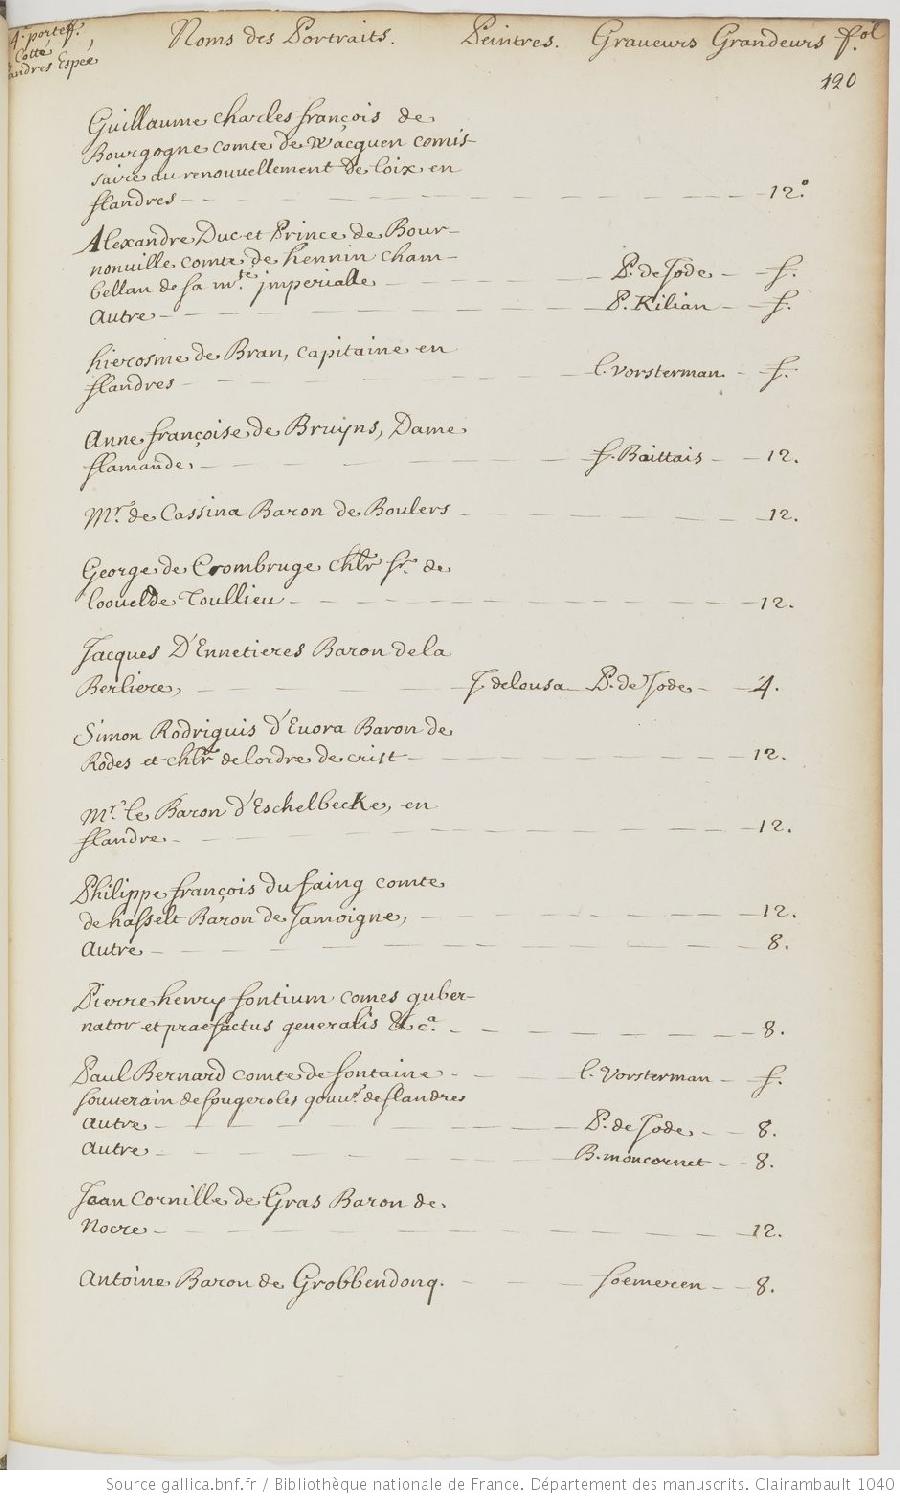 4.e portef.
Cotté
andres Espée
Noms des Portraits. Peintres. Graveurs Grandeurs fol
120
Guillaume charles françois de
Bourgogne comte de Wacquen comis-
saire au renouvellement de loix en
flandres 12.o
Alexandre Duc et Prince de Bour-
nonuille comte de hennin cham-
bellan de sa m.té imperialle P. de Jode f.
Autre P. Kilian f.
hierosme de Bran, capitaine en
flandres l. Vorsterman f.
Anne françoise de Bruyns, Dame
flamande f. Baittais 12.
Mr. de Cassina Baron de Boulers 12.
George de Crombruge Chlr Sr. de
Toullieu 12.
Jacques D'Ennetieres Baron de la
Berliere, J. delousa P. de Jode 4.
Simon Rodriguis d'Euora Baron de
Rodes et chlr de lordre de crist 12.
Mr. le Baron d'Eschelbecke, en
flandre 12.
Philippe françois du faing comte
de hasselt Baron de Jamoigne, 12.
Autre 8.
Pierre henry fontium comes guber-
nator et praefactus generalis &ca. 8.
Paul Bernard comte de fontaine l. Vorsterman f.
souuerain de fougeroles gouvr. de flandres
Autre P. de Jode 8.
Autre B. moncornet 8.
Jean Cornille de Gras Baron de
Nocre 12.
Antoine Baron de Grobbendonq. soemeren 8.
Source gallica.bnf.fr / Bibliothèque nationale de France. Département des manuscrits. Clairambault 1040